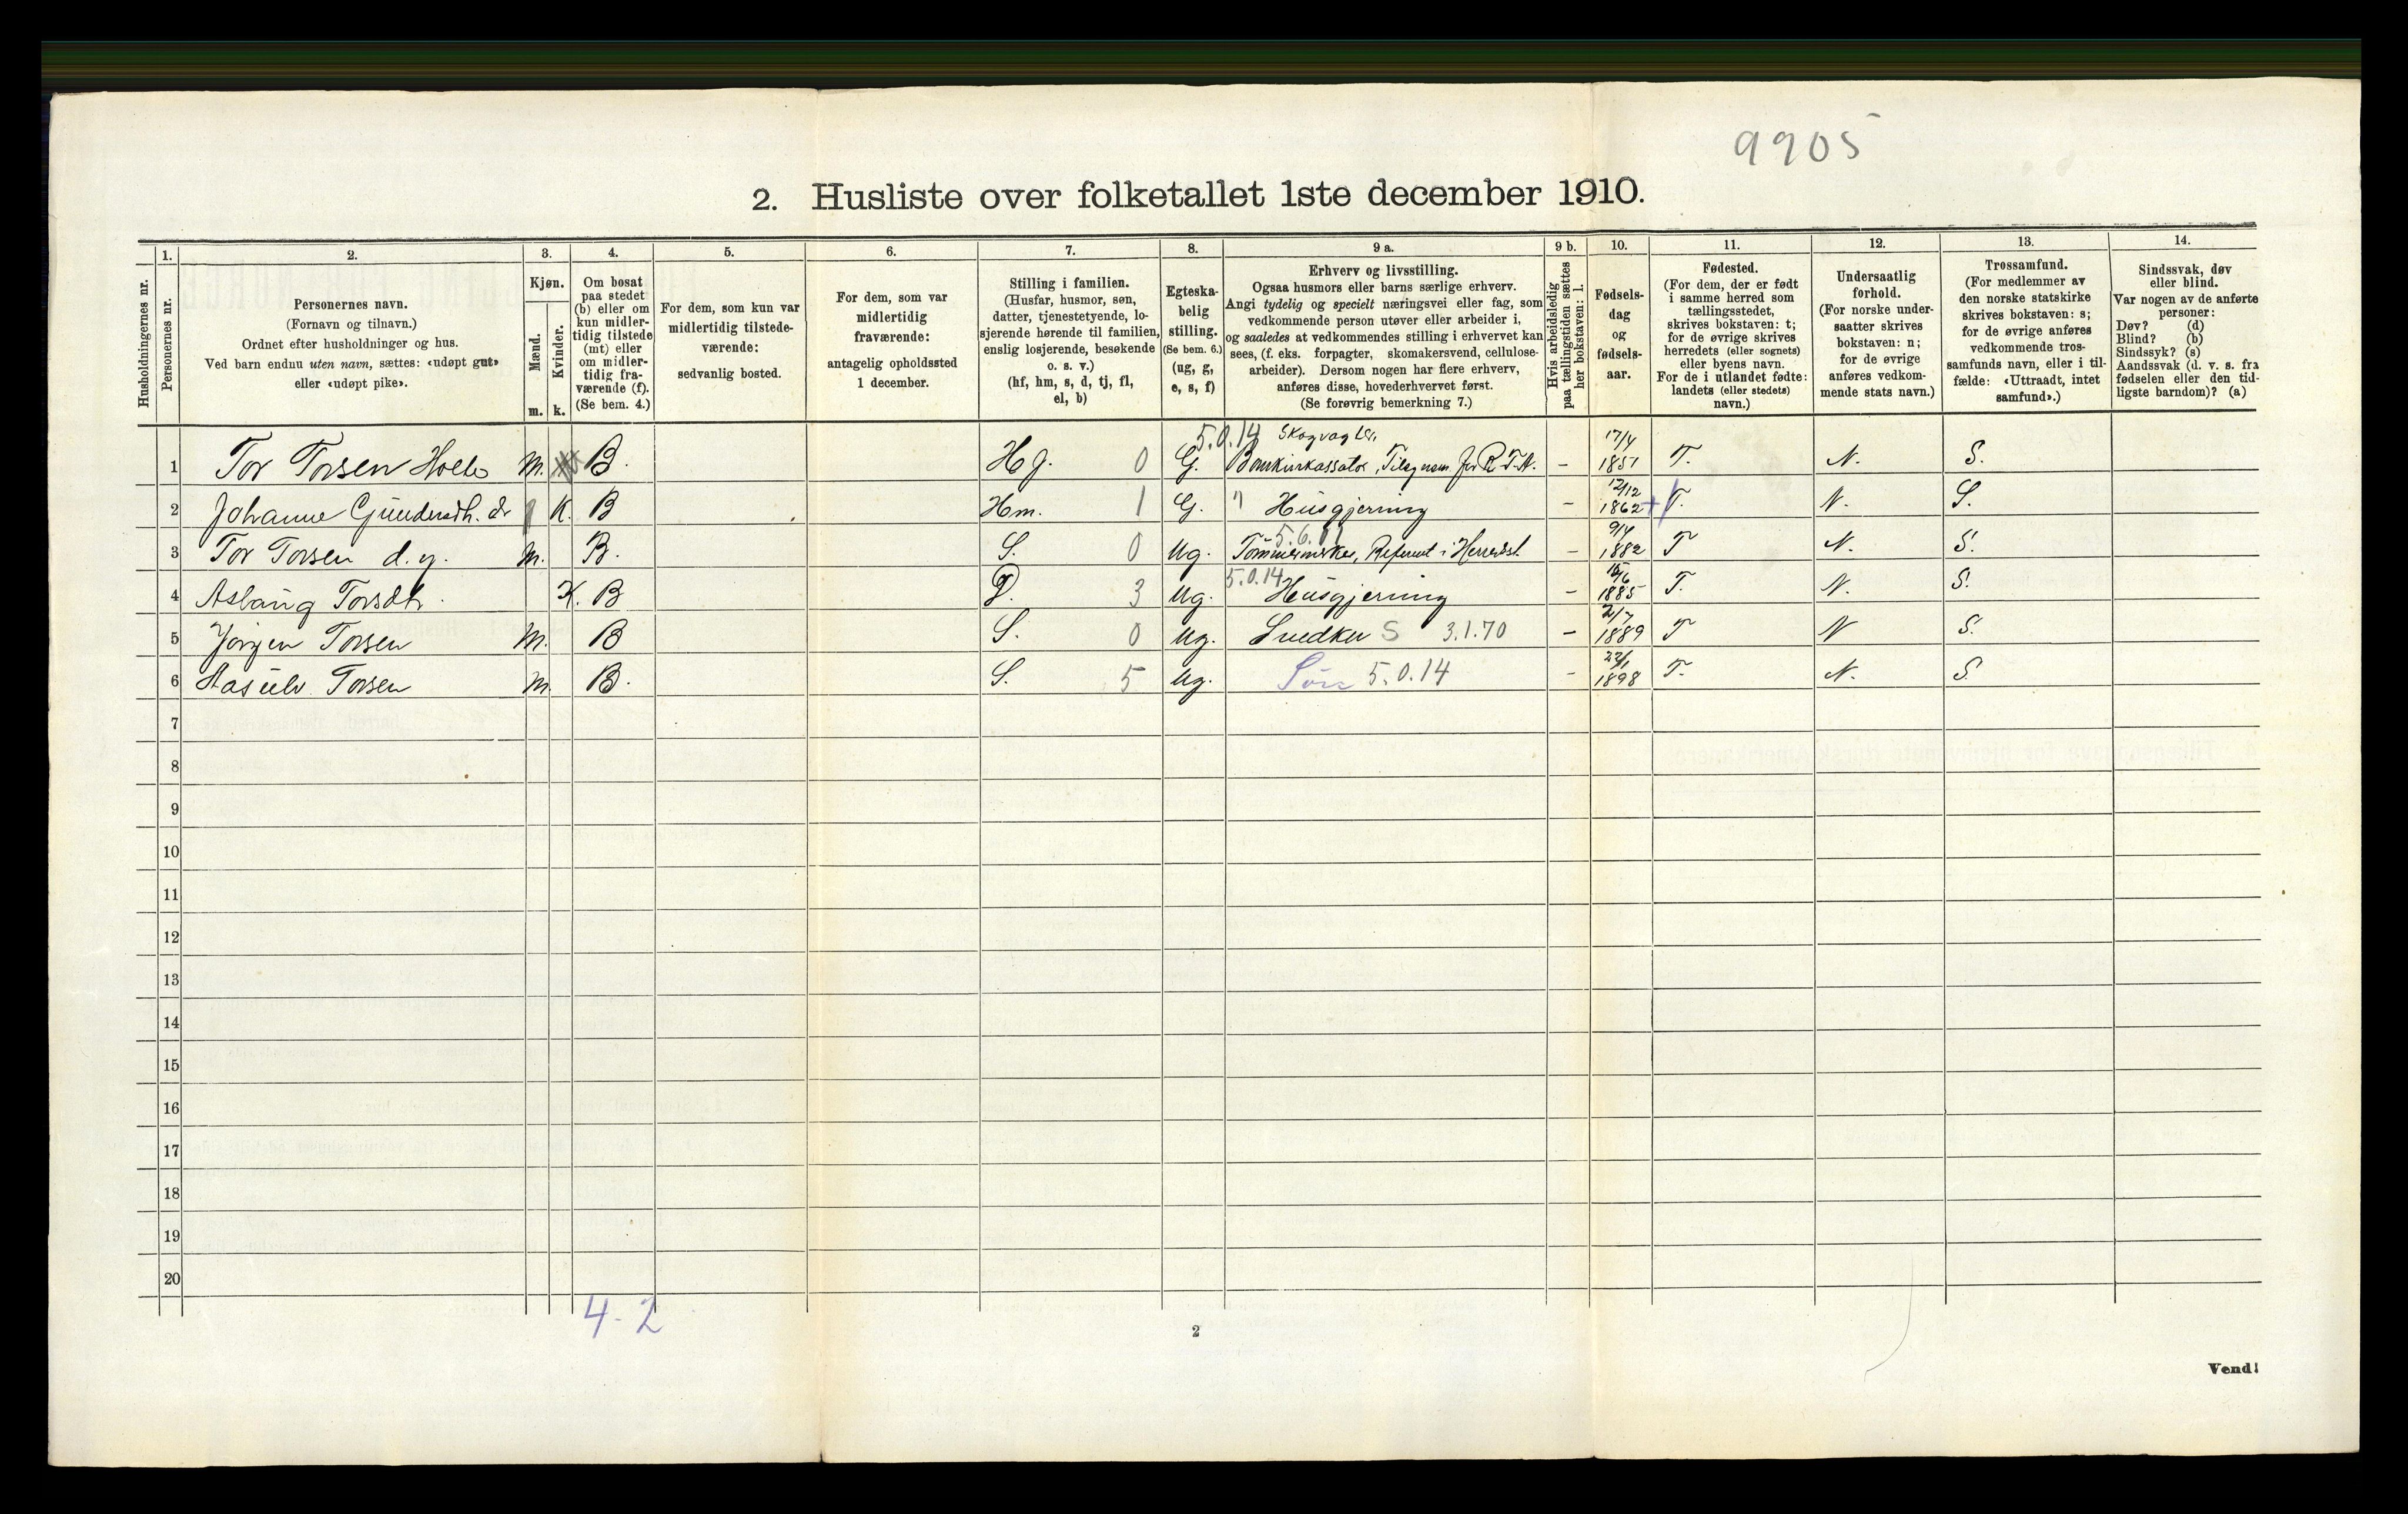 9905
2. Husliste over folketallet 1ste december 1910.
Husholdningernes nr.
1.
Personernes nr.
2.
Personernes navn.
(Fornavn og tilnavn.)
Ordnet efter husholdninger og hus.
Ved barn endnu uten navn, sættes: «udøpt gut»
eller «udøpt pike».
3.
Kjøn.
Mænd.
Kvinder.
m.
k.
4.
Om bosat
paa stedet
(b) eller om
kun midler-
tidig tilstede
(mt) eller
om midler-
tidig fra-
værende (f).
(Se bem. 4.)
5.
For dem, som kun var
midlertidig tilstede-
værende:
sedvanlig bosted.
6.
For dem, som var
midlertidig
fraværende:
antagelig opholdssted
1 december.
7.
Stilling i familien.
(Husfar, husmor, søn,
datter, tjenestetyende, lo-
sjerende hørende til familien,
enslig losjerende, besøkende
o. s. v.)
(hf, hm, s, d, tj, fl,
el, b)
8.
Egteska-
belig
stilling.
(Se bem. 6.)
(ug, g,
e, s, f)
9 a.
Erhverv og livsstilling.
Ogsaa husmors eller barns særlige erhverv.
Angi tydelig og specielt næringsvei eller fag, som
vedkommende person utøver eller arbeider i,
og saaledes at vedkommendes stilling i erhvervet kan
sees, (f. eks. forpagter, skomakersvend, cellulose-
arbeider). Dersom nogen har flere erhverv,
anføres disse, hovederhvervet først.
(Se forøvrig bemerkning 7.)
9 b.
Hvis arbeidsledig
paa tællingstiden sættes
her bokstaven: l.
10.
Fødsels-
dag
og
fødsels-
aar.
11.
Fødested.
(For dem, der er født
i samme herred som
tællingsstedet,
skrives bokstaven: t;
for de øvrige skrives
herredets (eller sognets)
eller byens navn.
For de i utlandet fødte:
landets (eller stedets)
navn.)
12.
Undersaatlig
forhold.
(For norske under-
saatter skrives
bokstaven: n;
for de øvrige
anføres vedkom-
mende stats navn.)
13.
Trossamfund.
(For medlemmer av
den norske statskirke
skrives bokstaven: s;
for de øvrige anføres
vedkommende tros-
samfunds navn, eller i til-
fælde: «Uttraadt, intet
samfund».)
14.
Sindssvak, døv
eller blind.
Var nogen av de anførte
personer:
Døv? (d)
Blind? (b)
Sindssyk? (s)
Aandssvak (d. v. s. fra
fødselen eller den tid-
ligste barndom)? (a)
5.0.14 Skogvagter,
1 Tor Torsen Holte M. B. Hf. 0 G. - 17/4 1851 T. N. S.
2 Johanne Gundersdh. K. B Hm. 1 G. " Husgjerning - 12/12 1862 T. N. S.
5.6.11
3 Tor Torsen d. y. M. B. S. 0 Ug. Tømmermerker, Referent i Herredst. - 9/4 1882 T N. S.
5.0.14
4 Aslaug Torsdh. K. B D. 3 Ug. Husgjerning - 1885 T. N. S.
5 Jørgen Torsen M. B S. 0 Ug. Snedker S 3.1.70 - 2/7 1889 T N S.
6 Aasulv Torsen M. B. S. 5 Ug. 5.0.14 - 22/1 1898 T. N. S
7
8
9
10
11
12
13
14
15
16
17
18
19
20
4-2
2
Vend!